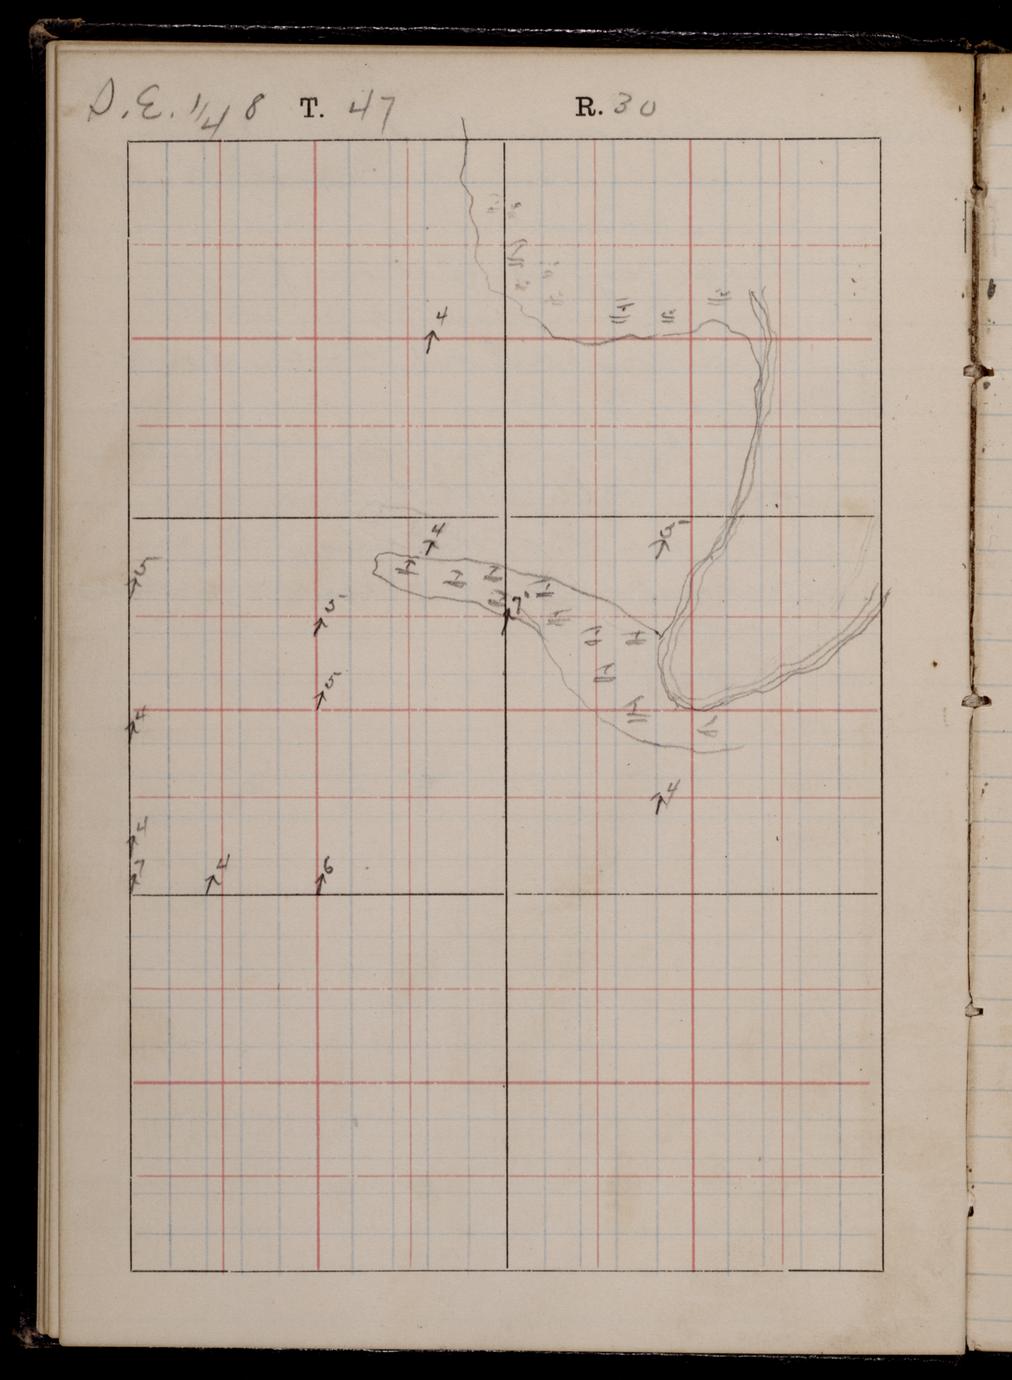 S.E. 1/4 8 T. 47 R. 30
4
4
5
5
7
5
5
4
4
4
7
4
6